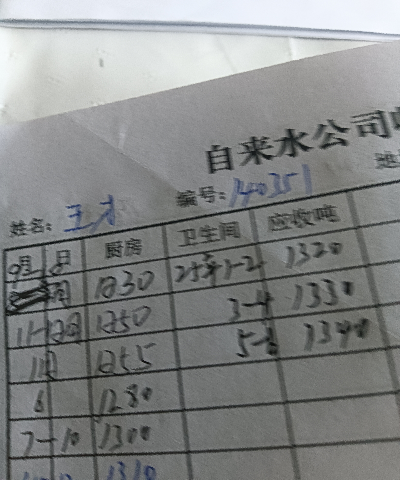 自来水公司
姓名: 王才 编号: 140351
月 日 厨房 卫生间 应收吨
1230 25年1-2 1320
11-12月 1250 3-4 1330
1255 5-6 1340
6 1280
7-10 1300
1310